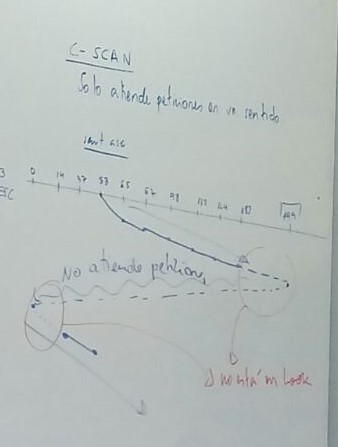 C-SCAN
Solo atiende peticiones en un sentido
0 14 37 53 65 67 98 122 124 183 199
No atiende peticiones
no está en Look